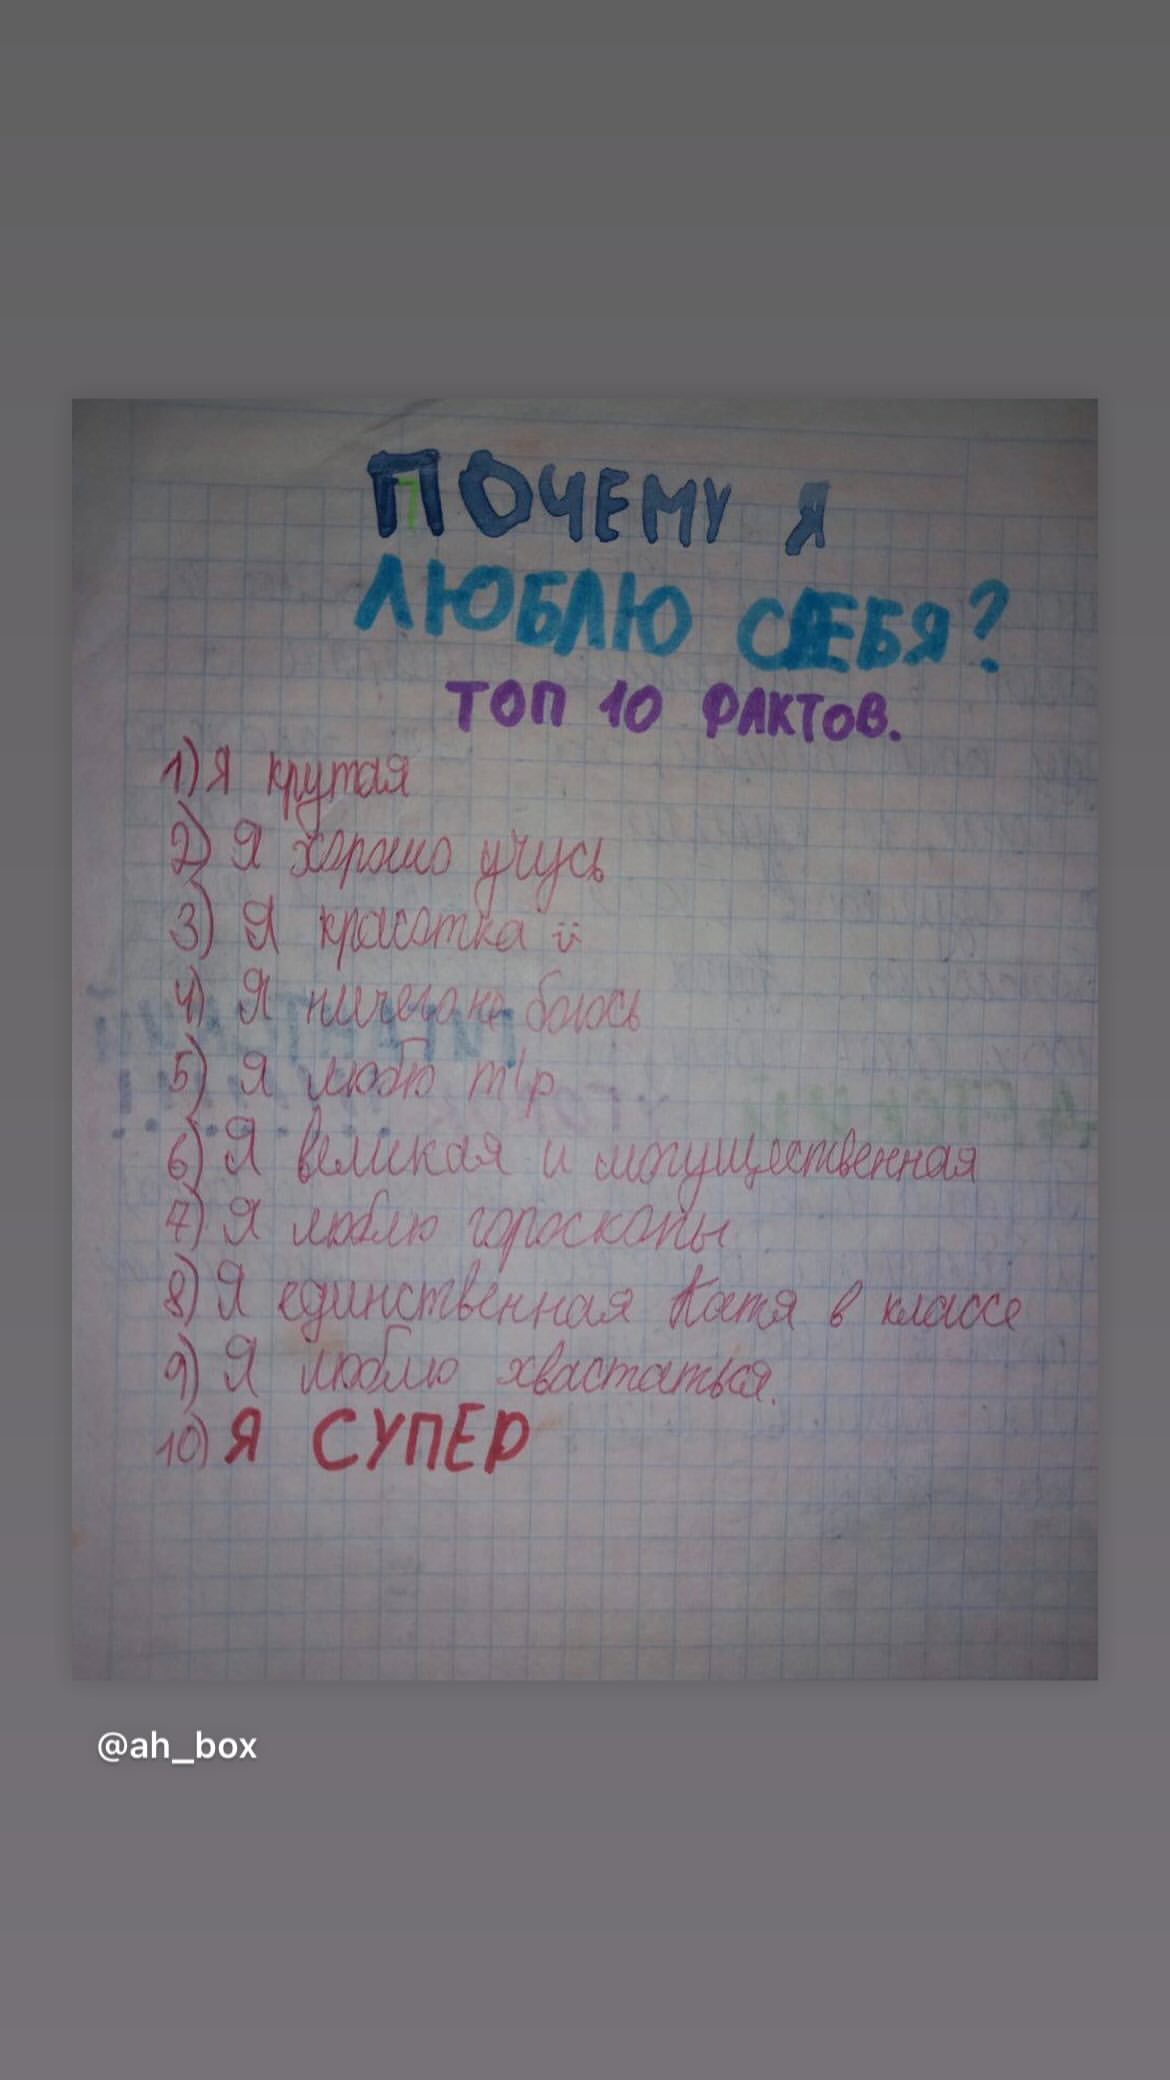 ПОЧЕМУ Я
ЛЮБЛЮ СЕБЯ?
ТОП 10 ФАКТОВ.
1) Я крутая
2) Я хорошо учусь
3) Я красотка
4) Я ничего не боюсь
5) Я люблю т/р
6) Я великая и могущественная
7) Я люблю гороскопы
8) Я единственная Катя в классе
9) Я люблю хвастаться.
10) Я СУПЕР
@ah_box